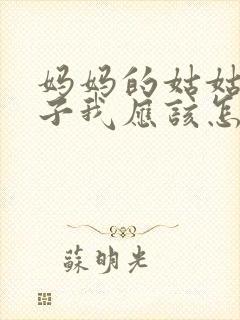 妈妈的姑姑
子我應該怎
蘇明光